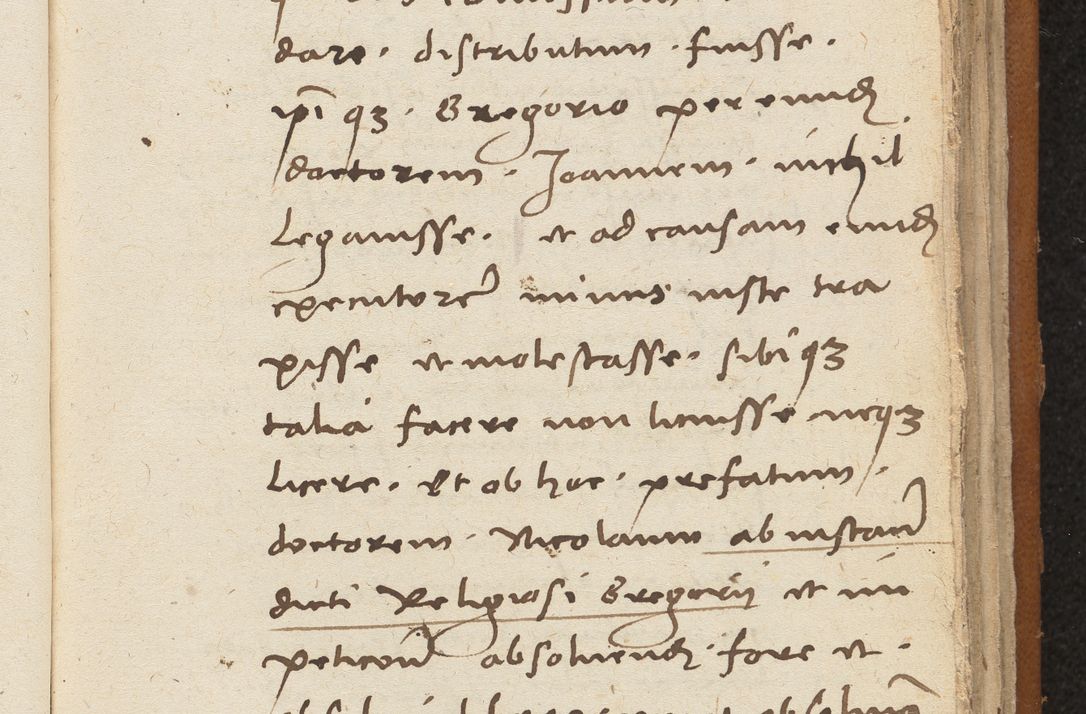 dare · distributum · fuisse ·
ip̄i qꝫ · Gregorio per eundꝫ
doctorem · Joannem · nichil
legauisse · et ad causam eundꝫ
executorē minus iuste tra
xisse et molestasse · sibi qꝫ
talia facere non licuisse neqꝫ
licere · Et ob hoc · prefatum ·
doctorem · Nicolaum ab instan̄
dicti Religiosi Gregorij et im
peticon̄ absoluendꝫ · fore et ·